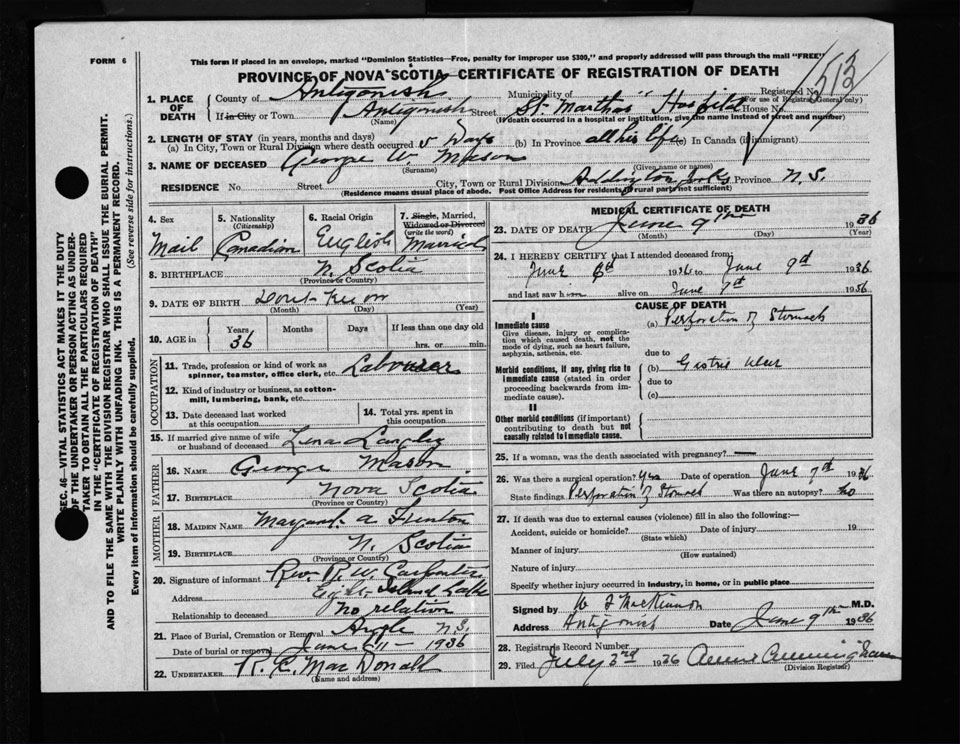 FORM 6
This form if placed in an envelope, marked "Dominion Statistics—Free, penalty for improper use $300," and properly addressed will pass through the mail "FREE"
PROVINCE OF NOVA SCOTIA CERTIFICATE OF REGISTRATION OF DEATH
Registered No. 1513
(For use of Registrar General only)
1. PLACE OF DEATH County of Antigonish Municipality of
If in City or Town Antigonish Street St. Marthas Hospital House No.
(Name) (If death occurred in a hospital or institution, give the name instead of street and number)
2. LENGTH OF STAY (in years, months and days)
(a) In City, Town or Rural Division where death occurred 5 Days (b) In Province all his life (c) In Canada (if immigrant)
3. NAME OF DECEASED George W. Mason
(Surname) (Given name or names)
RESIDENCE No. Street City, Town or Rural Division Addington Forks Province N. S.
(Residence means usual place of abode. Post Office Address for residents in rural parts not sufficient)
4. Sex Mail
5. Nationality (Citizenship) Canadian
6. Racial Origin English
7. Single, Married, Widowed or Divorced (write the word) Married
8. BIRTHPLACE N. Scotia
(Province or Country)
9. DATE OF BIRTH Dont Know
(Month) (Day) (Year)
10. AGE in Years Months Days If less than one day old
36 hrs. or min.
OCCUPATION
11. Trade, profession or kind of work as spinner, teamster, office clerk, etc. Labourer
12. Kind of industry or business, as cotton-mill, lumbering, bank, etc.
13. Date deceased last worked at this occupation
14. Total yrs. spent in this occupation
15. If married give name of wife or husband of deceased Lena Langley
FATHER
16. NAME George Mason
17. BIRTHPLACE Nova Scotia
(Province or Country)
MOTHER
18. MAIDEN NAME Margaret A Fenton
19. BIRTHPLACE N. Scotia
(Province or Country)
20. Signature of informant Rev R. W. Carpenter
Address Lake
Relationship to deceased No relation
21. Place of Burial, Cremation or Removal N.S.
Date of burial or removal June 11 - 1936
22. UNDERTAKER R. C. MacDonald
(Name and address)
MEDICAL CERTIFICATE OF DEATH
23. DATE OF DEATH June 9th 1936
(Month) (Day) (Year)
24. I HEREBY CERTIFY that I attended deceased from:
June 6th 1936 to June 9th 1936
and last saw him alive on June 9th 1936
CAUSE OF DEATH
I
Immediate cause
Give disease, injury or complication which caused death, not the mode of dying, such as heart failure, asphyxia, asthenia, etc.
(a) Perforation of Stomach
due to
Morbid conditions, if any, giving rise to immediate cause (stated in order proceeding backwards from immediate cause).
(b) Gastric Ulcer
due to
(c)
II
Other morbid conditions (if important) contributing to death but not causally related to immediate cause.
25. If a woman, was the death associated with pregnancy?
26. Was there a surgical operation? Yes Date of operation June 7th 1936
State findings Perforation of Stomach Was there an autopsy? No
27. If death was due to external causes (violence) fill in also the following:—
Accident, suicide or homicide? Date of injury 19
(State which)
Manner of injury
(How sustained)
Nature of injury
Specify whether injury occurred in industry, in home, or in public place
Signed by W F MacKinnon M.D.
Address Antigonish Date June 9th 1936
28. Registrar's Record Number
29. Filed July 3rd 1936 Cunningham
(Division Registrar)
SEC. 46—VITAL STATISTICS ACT MAKES IT THE DUTY
OF THE UNDERTAKER OR PERSON ACTING AS UNDER-
TAKER TO OBTAIN ALL THE PARTICULARS REQUIRED
IN THE "CERTIFICATE OF REGISTRATION OF DEATH"
AND TO FILE THE SAME WITH THE DIVISION REGISTRAR WHO SHALL ISSUE THE BURIAL PERMIT.
WRITE PLAINLY WITH UNFADING INK. THIS IS A PERMANENT RECORD.
Every item of information should be carefully supplied. (See reverse side for instructions.)